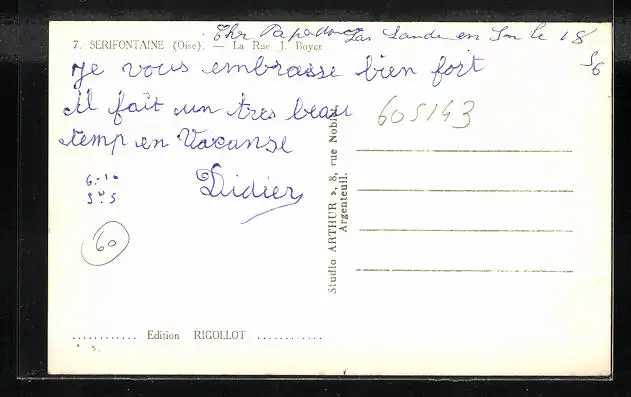 Cher Papa
en Son le 18
56
7. SERIFONTAINE (Oise). — La Rue J. Boyer
je vous embrasse bien fort
il fait un tres beau
temp en Vacanse
Didier
6.10
605143
60
Studio ARTHUR », 8, rue Nobl
Argenteuil.
............ Edition RIGOLLOT ............